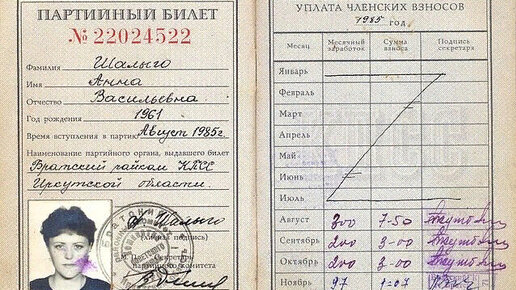 ПАРТИЙНЫЙ БИЛЕТ
№ 22024522
Фамилия Шалыго
Имя Анна
Отчество Васильевна
Год рождения 1961
Время вступления в партию Август 1985г.
Наименование партийного органа, выдавшего билет
Братский райком КПСС
Иркутской области.
Шалыго
(Личная подпись)
Секретарь
партийного комитета
УПЛАТА ЧЛЕНСКИХ ВЗНОСОВ
1985 год
Месяц Месячный заработок Сумма взноса Подпись секретаря
Январь
Февраль
Март
Апрель
Май
Июнь
Июль
Август 300 7-50
Сентябрь 200 3-00
Октябрь 200 3-00
Ноябрь 97 1-07